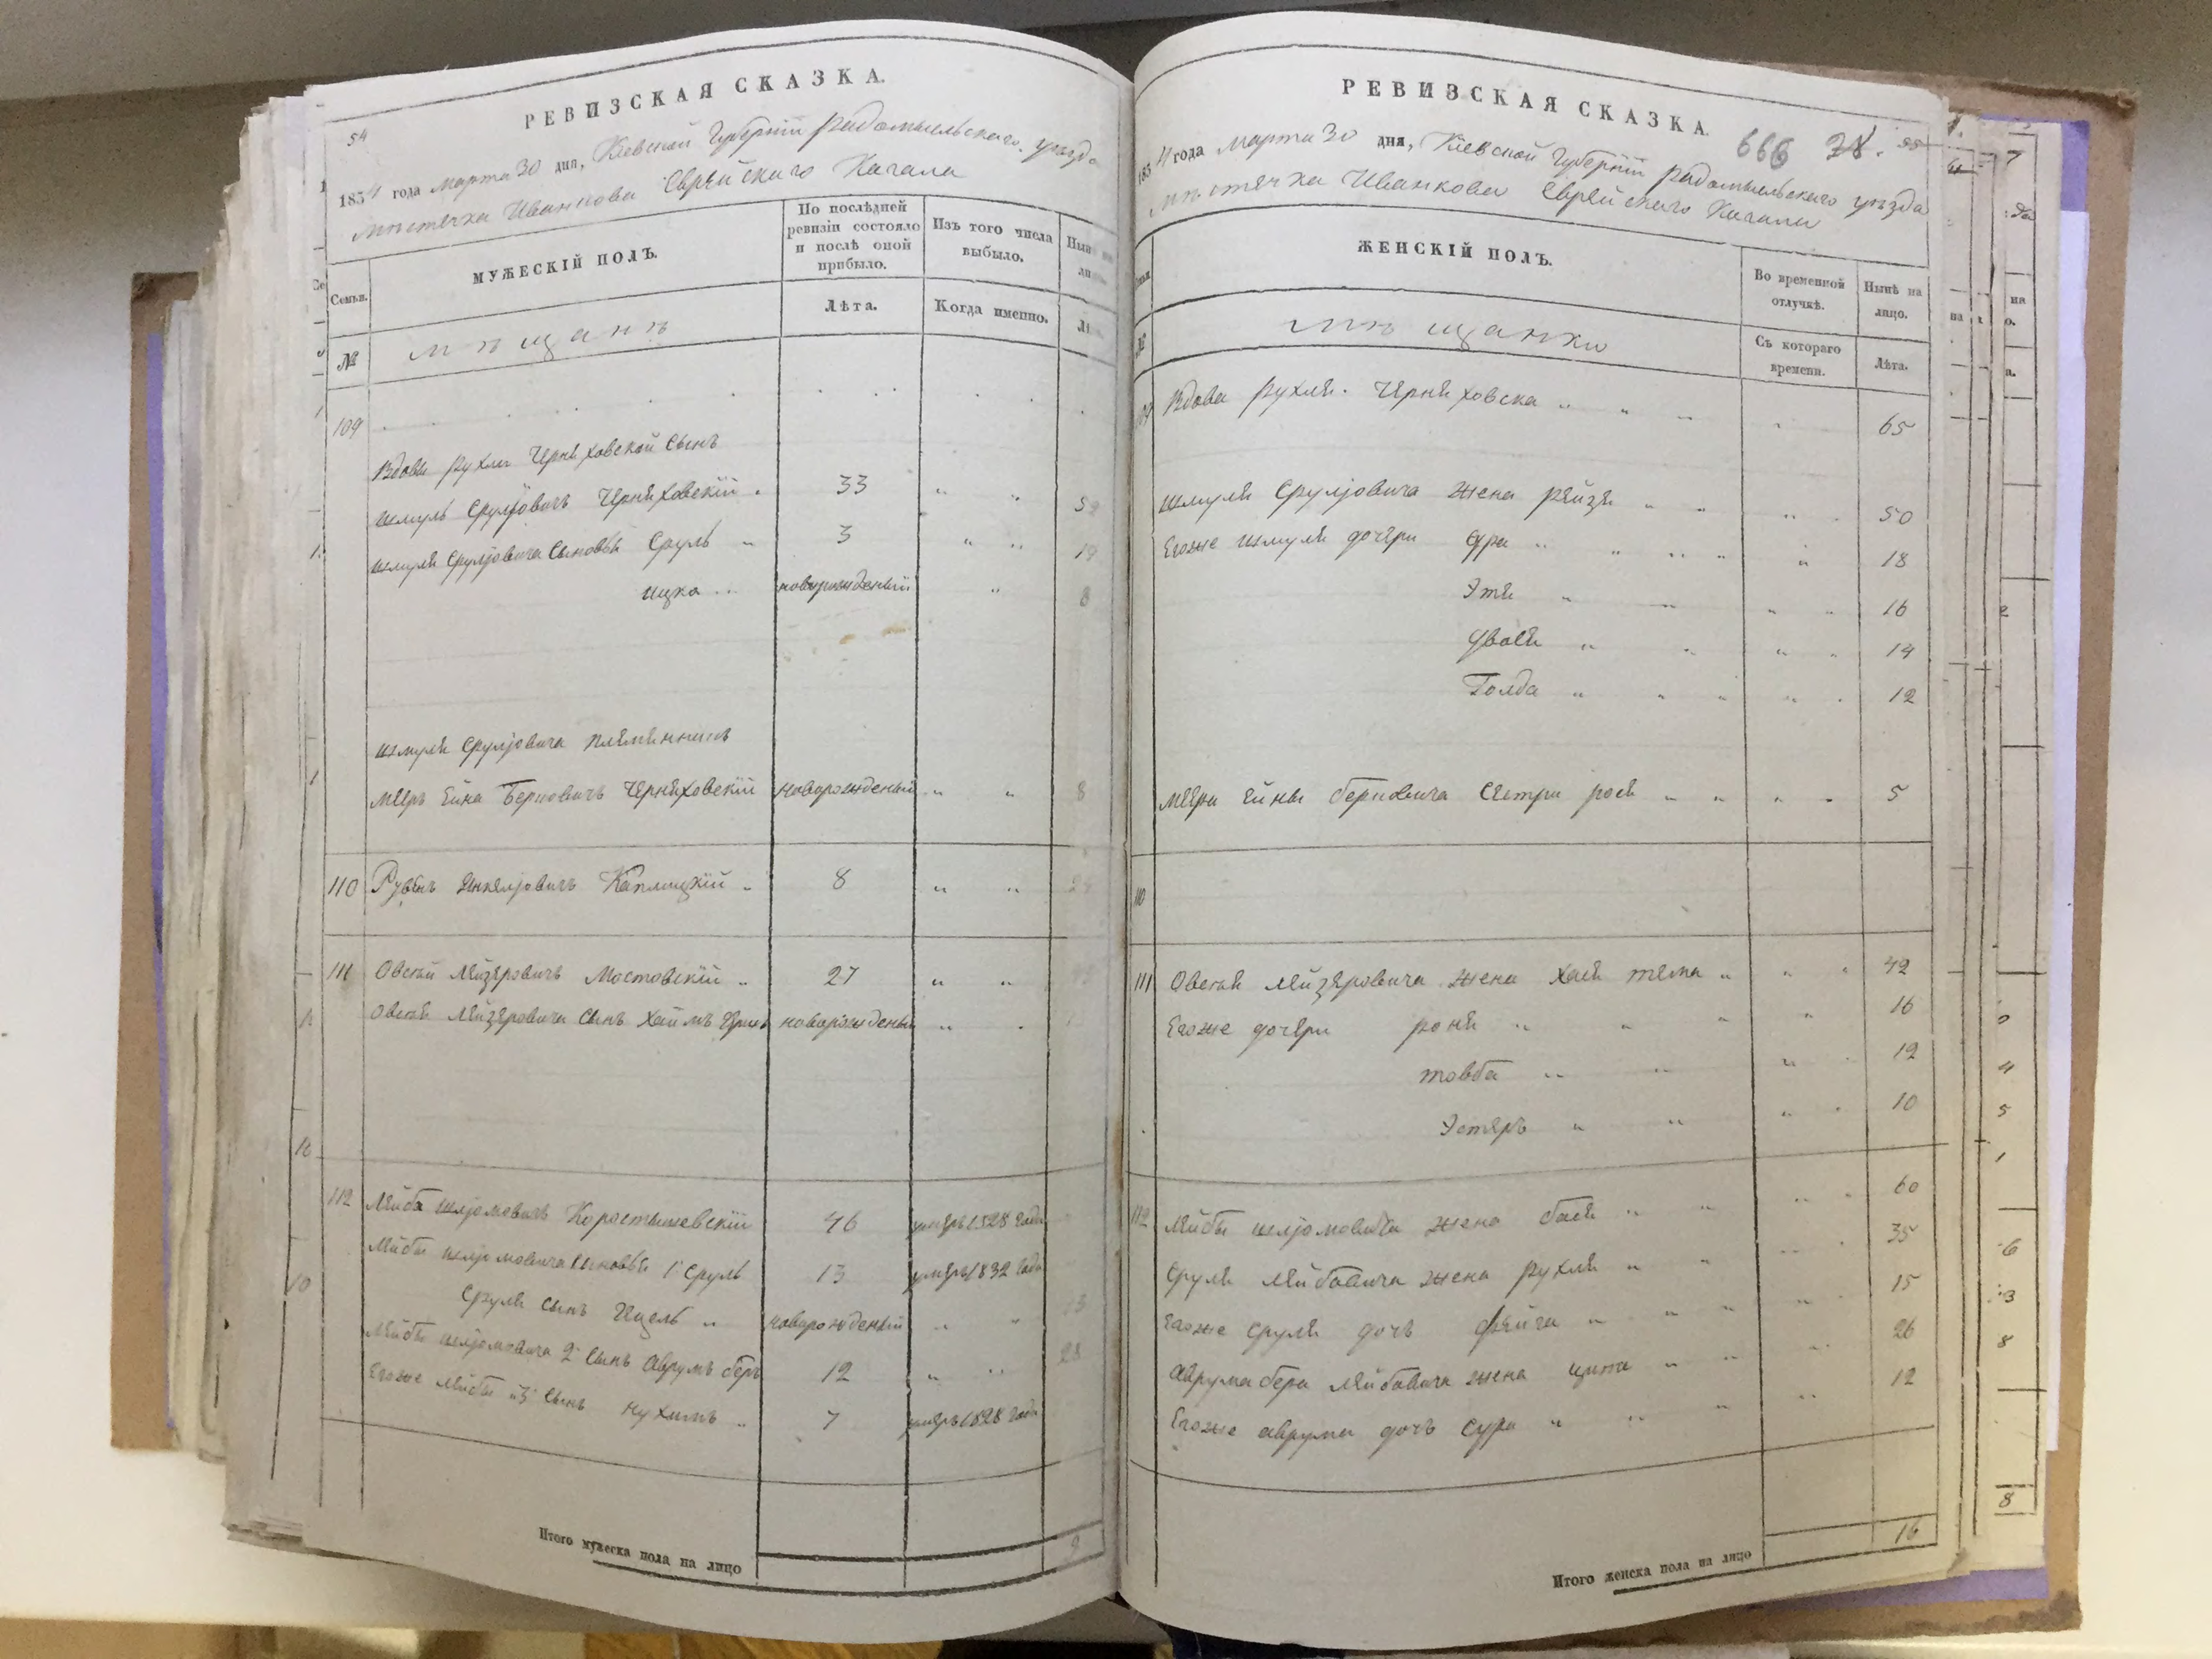 РЕВИЗСКАЯ СКАЗКА.
54
1834 года марта 30 дня, Кіевской Губерніи Радомысльскаго уѣзда
мѣстечка Иванкова Еврейскаго Кагала
Семьи.
МУЖЕСКІЙ ПОЛЪ.
По послѣдней ревизіи состояло и послѣ оной прибыло.
Изъ того числа выбыло.
№
мѣщанѣ
Лѣта.
Когда именно.
109
Вдовы Рухли Черняховской сынъ
Шмуль Срулјовичъ Черняховскій 33
Шмуля Срулјовича сыновья Сруль 3
Ицка новорожденый 8
Шмуля Срулјовича племянникъ
Мееръ Ейна Берковичъ Черняховскій новорожденый 8
110 Рувѣнъ Янкелјовичъ Каплицкій 8
111 Овсѣй Лейзеровичъ Мостовскій 27
Овсѣя Лейзеровича сынъ Хаимъ новорожденый
112 Лейба Шлјомовичъ Коростышевскій 46 умеръ 1828 года
Лейбы Шлјомовича сыновья 1й Сруль 13 умеръ 1832 года
Сруля сынъ Ицель новорожденый
Лейбы Шлјомовича 2й сынъ Аврумъ Беръ 12 28
Егоже Лейбы 3й сынъ Нухимъ 7 умеръ 1828 года
Итого мужеска пола на лицо 9
РЕВИЗСКАЯ СКАЗКА.
666 55
1834 года марта 30 дня, Кіевской Губерніи Радомысльскаго уѣзда
мѣстечка Иванкова Еврейскаго Кагала
ЖЕНСКІЙ ПОЛЪ.
Во временной отлучкѣ.
Нынѣ на лицо.
мѣщанки
Съ котораго времени.
Лѣта.
109 Вдова Рухля Черняховска 65
Шмуля Срулјовича жена Рейзя 50
Егоже Шмуля дочери 18
Этя 16
Двося 14
Голда 12
Меера Ейны Берковича сестра Рося 5
110
111 Овсѣя Лейзеровича жена Хася Тема 42
Егоже дочери Роня 16
Товба 12
Эстеръ 10
112 Лейбы Шлјомовича жена Бася 60
Сруля Лейбовича жена Рухля 35
Егоже Сруля дочъ Фейга 15
Аврума Бера Лейбовича жена Ципа 26
Егоже Аврума дочъ Сура 12
Итого женска пола на лицо 16